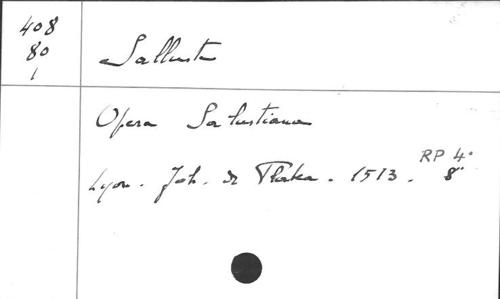 408
80
1
Salluste
Opera Salustiana
RP 4°
Lyon. Joh. de Platea. 1513. 8°